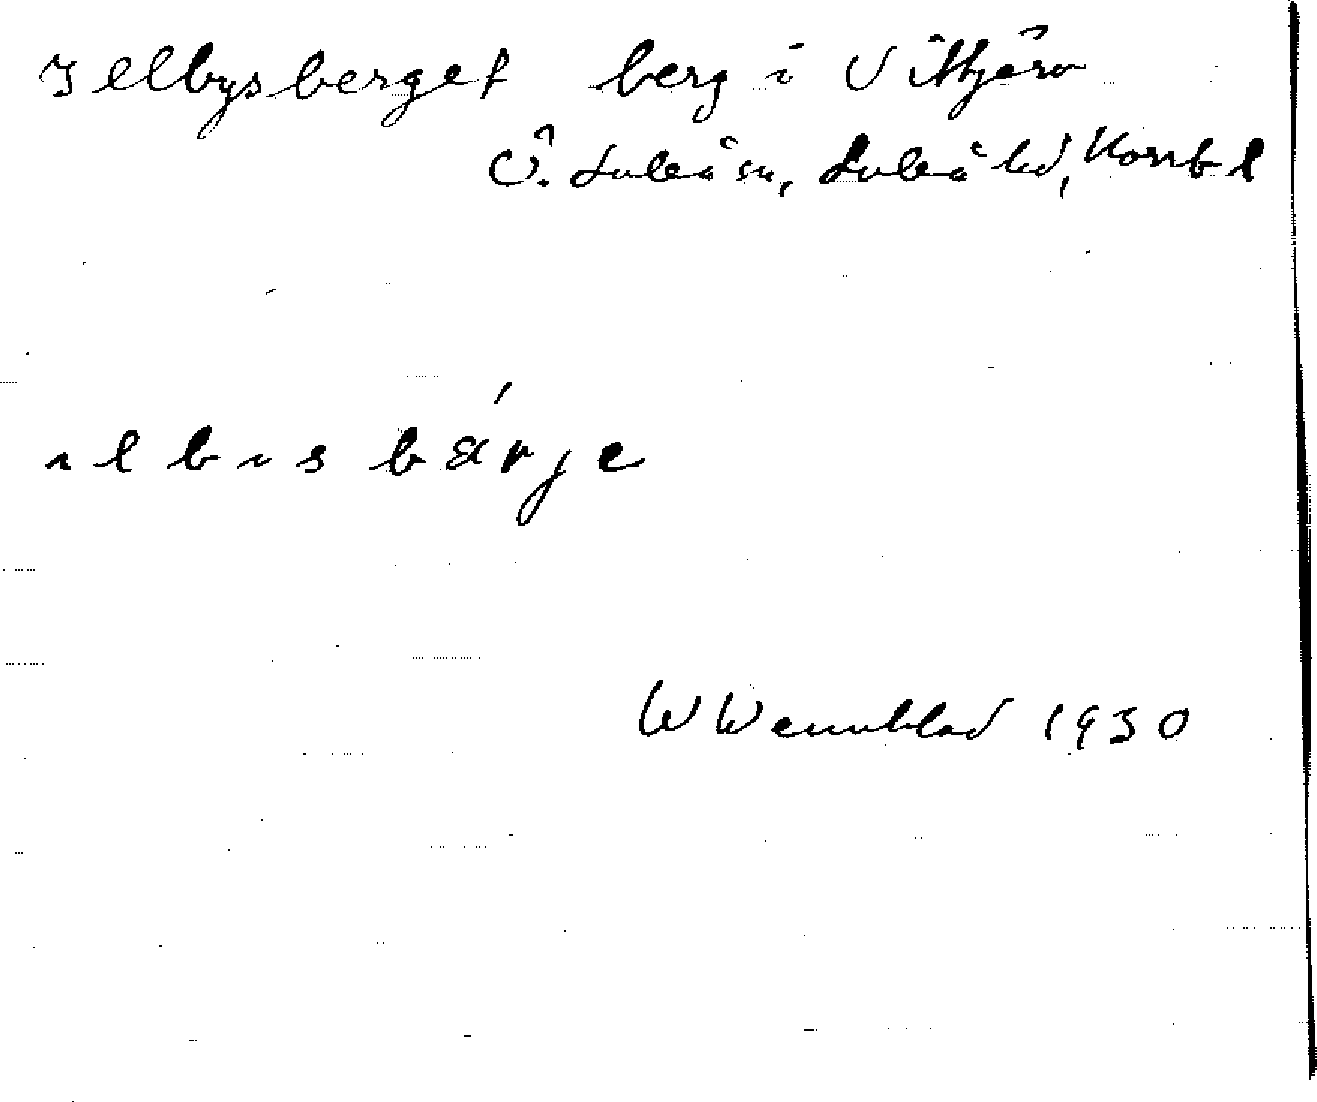 Illbysberget berg i Vittjärv
Ö. Luleå sn, Luleå hd, Norrb l
ılbısbärje
W Wennblad 1930